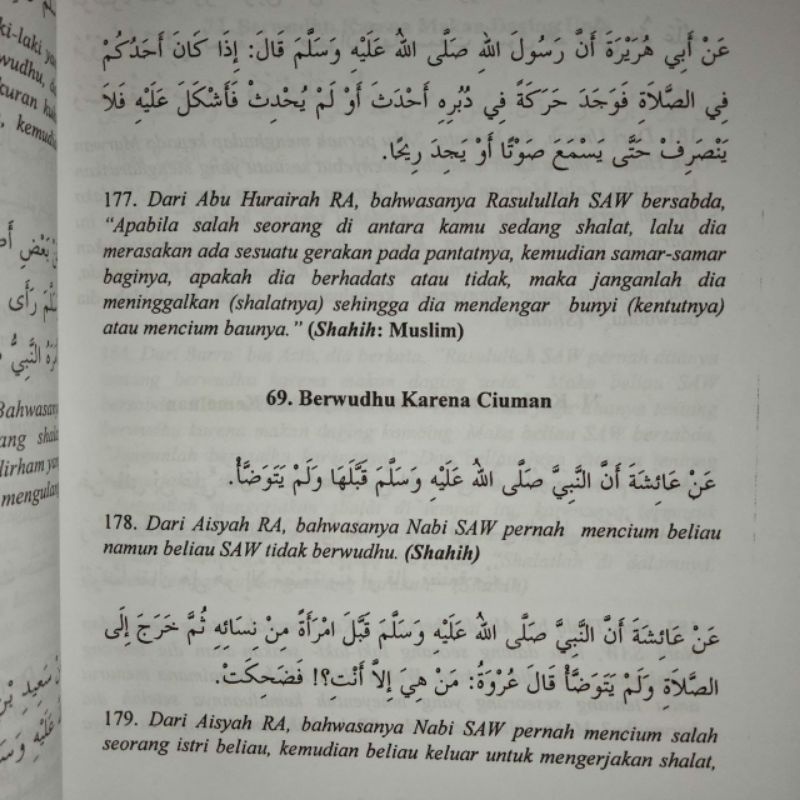 عَنْ أَبِي هُرَيْرَةَ أَنَّ رَسُولَ اللهِ صَلَّى اللهُ عَلَيْهِ وَسَلَّمَ قَالَ: إِذَا كَانَ أَحَدُكُمْ
فِي الصَّلَاةِ فَوَجَدَ حَرَكَةً فِي دُبُرِهِ أَحْدَثَ أَوْ لَمْ يُحْدِثْ فَأَشْكَلَ عَلَيْهِ فَلَا
يَنْصَرِفْ حَتَّى يَسْمَعَ صَوْتًا أَوْ يَجِدَ رِيحًا.
177. Dari Abu Hurairah RA, bahwasanya Rasulullah SAW bersabda,
“Apabila salah seorang di antara kamu sedang shalat, lalu dia
merasakan ada sesuatu gerakan pada pantatnya, kemudian samar-samar
baginya, apakah dia berhadats atau tidak, maka janganlah dia
meninggalkan (shalatnya) sehingga dia mendengar bunyi (kentutnya)
atau mencium baunya.” (Shahih: Muslim)
69. Berwudhu Karena Ciuman
عَنْ عَائِشَةَ أَنَّ النَّبِيَّ صَلَّى اللهُ عَلَيْهِ وَسَلَّمَ قَبَّلَهَا وَلَمْ يَتَوَضَّأْ.
178. Dari Aisyah RA, bahwasanya Nabi SAW pernah mencium beliau
namun beliau SAW tidak berwudhu. (Shahih)
عَنْ عَائِشَةَ أَنَّ النَّبِيَّ صَلَّى اللهُ عَلَيْهِ وَسَلَّمَ قَبَّلَ امْرَأَةً مِنْ نِسَائِهِ ثُمَّ خَرَجَ إِلَى
الصَّلَاةِ وَلَمْ يَتَوَضَّأْ قَالَ عُرْوَةُ: مَنْ هِيَ إِلاَّ أَنْتِ؟! فَضَحِكَتْ.
179. Dari Aisyah RA, bahwasanya Nabi SAW pernah mencium salah
seorang istri beliau, kemudian beliau keluar untuk mengerjakan shalat,